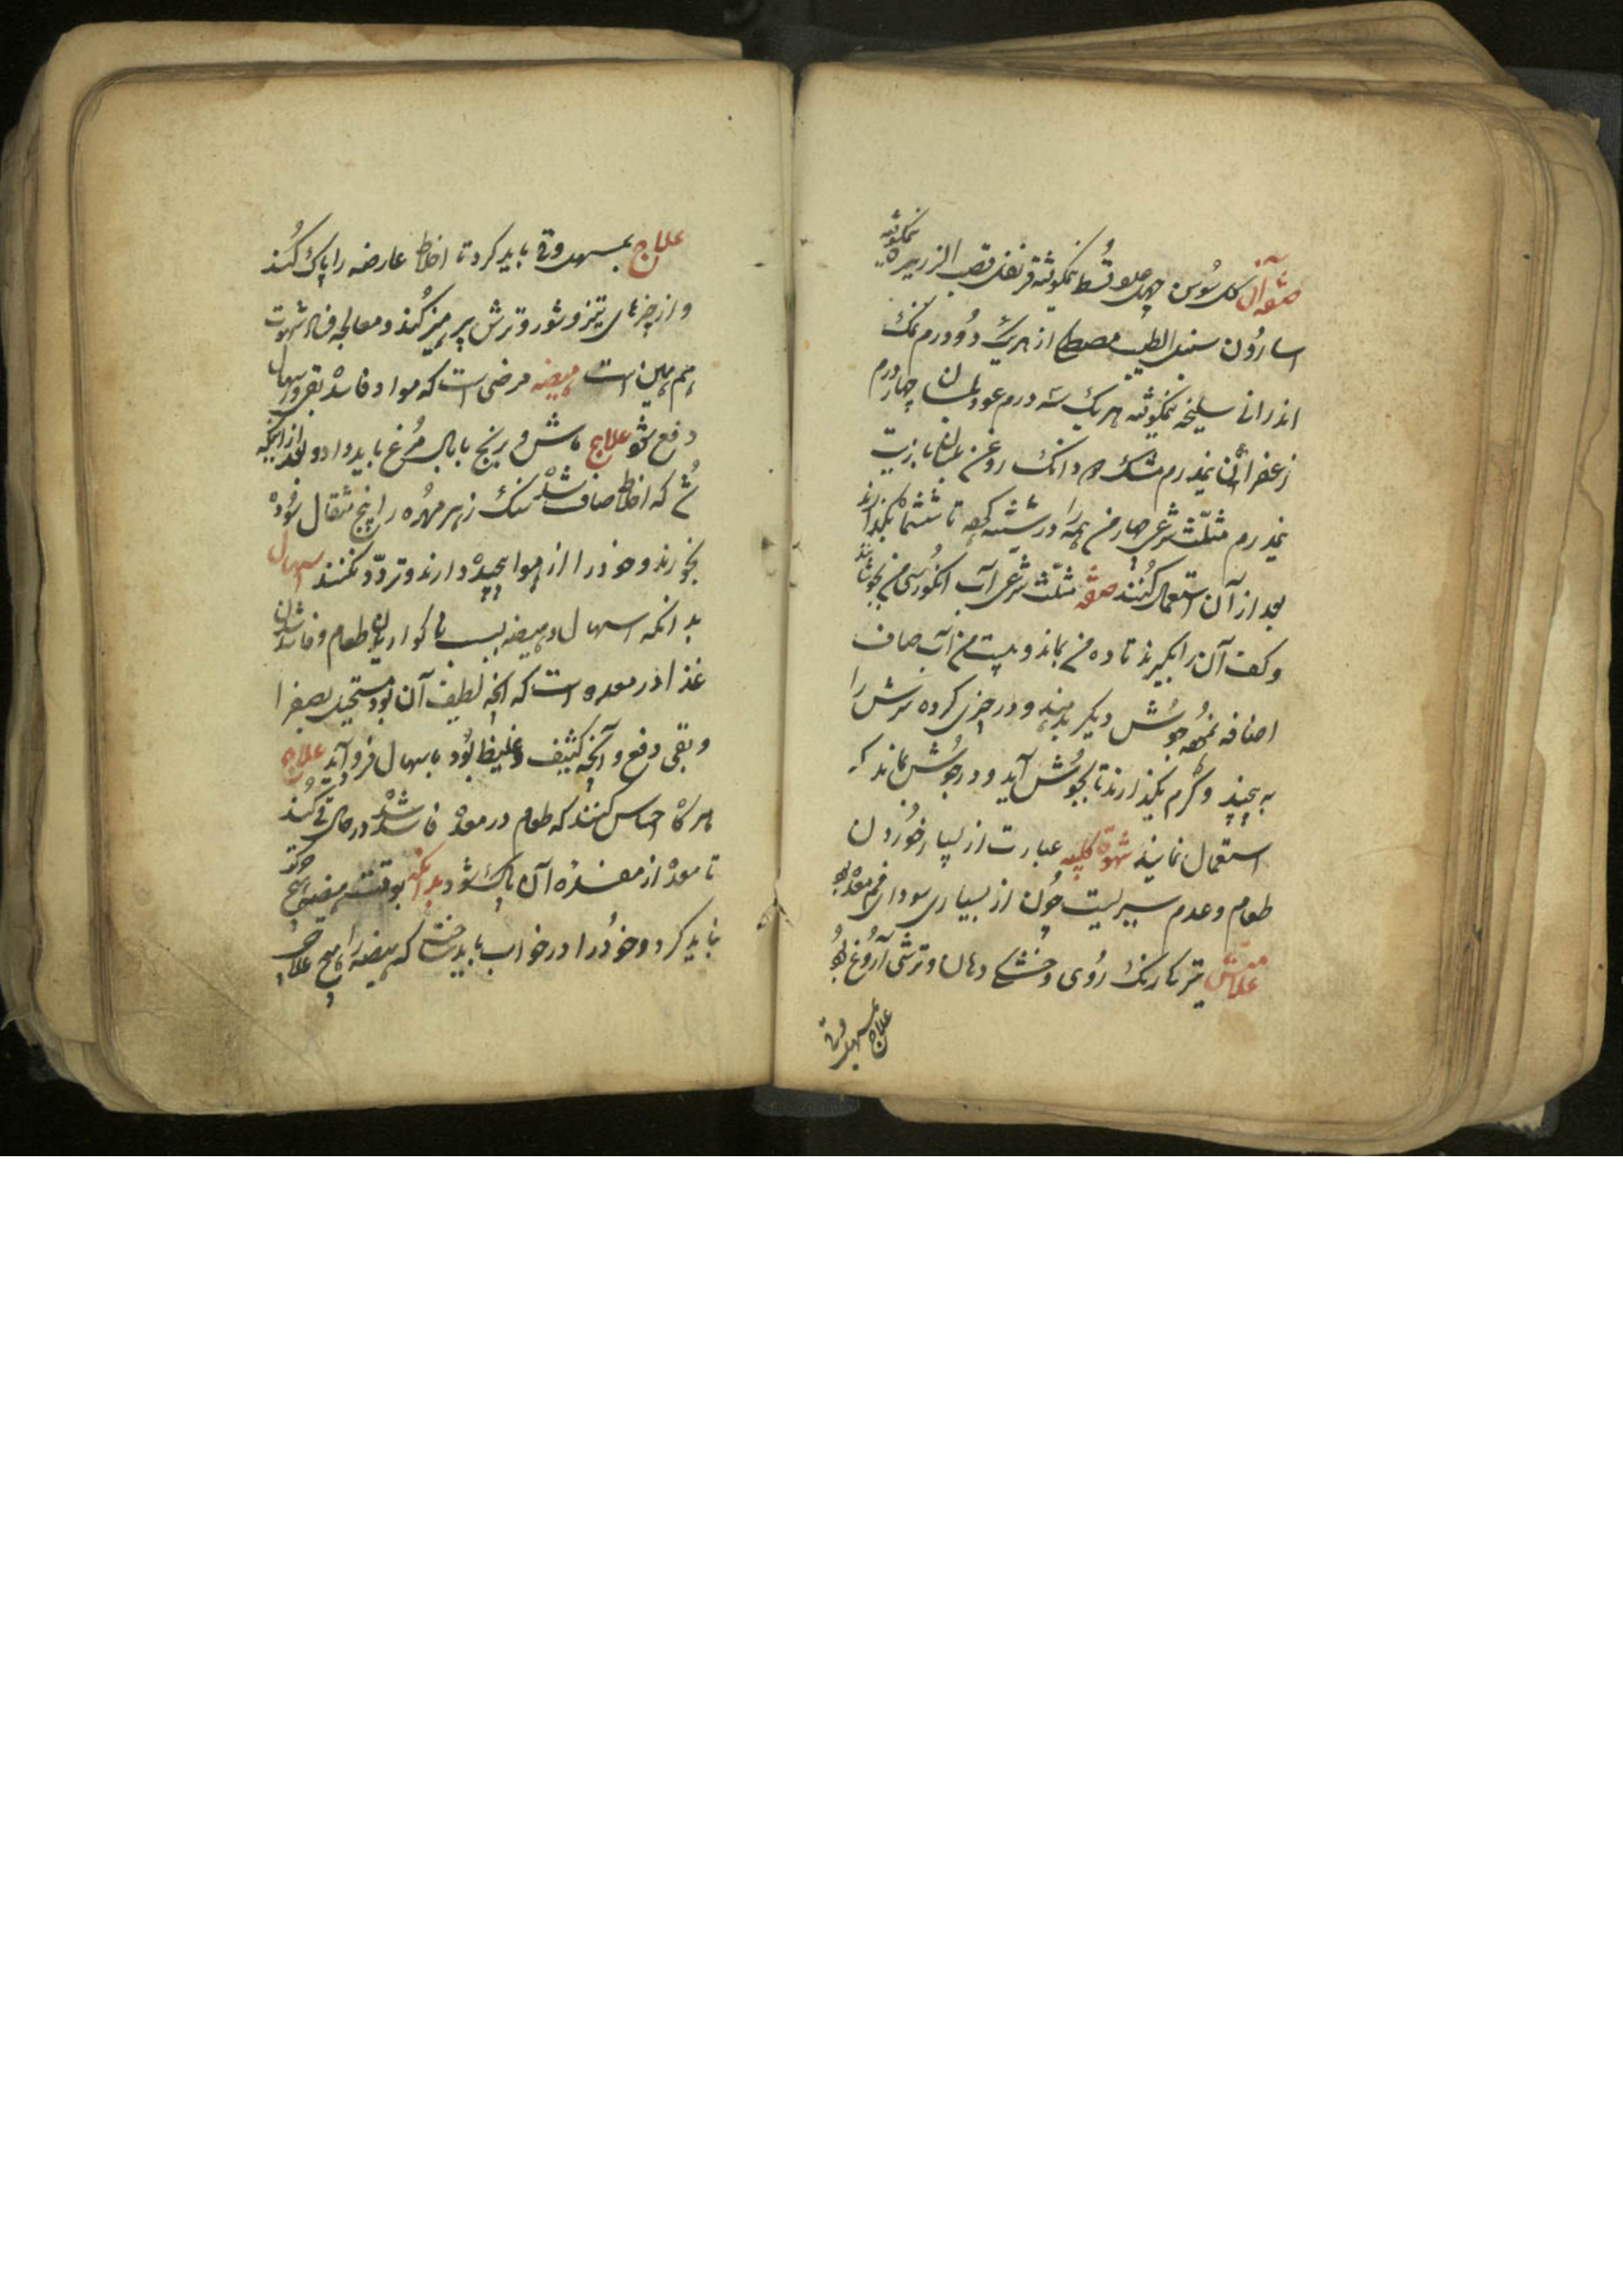 صفه آن کل سُوسن چهل عدد قُسط نیمکوفته قرنفل قصب الزریره نیمکوفته
اسارُون سنبل الطیب مصطکی از هر یک دُو درم نمک
اندرانی سلیخه نیمکوفته هر یک سه درم عود بلسان چهار درم
زعفران نیمدرم مشک دانک روغن بلسان یا زیت
نیمدرم مثلّث شرعی چهار من همه را در شیشه کهه تا ششماه بکذارند
بعد از آن استعمال کُنند صفه مثلّث شرعی آب انکور سی من بجوشانند
وکف آن را بکیرند تا ده من بماند و بیست من آب صاف
اضافه نمُوده جوُش دیکر بدهند و در چیزی کرده سرش را
به پیچند و کرم بکذارند تا بجوُش آید و در جوُش نماند که
استعمال نمایند شهوة کلبیه عبارت از بسیار خوُردن
طعام و عدم سیریست چُون از بسیاری سودای فم معده بود
علامتش تیرکی رنک رُوی و خشکی دهان و ترشی آرُوغ بود
علاج بمسهل و قی
علاج بمسهل وقی باید کرد تا اخلاط عارضه را پاک کُند
و از چیزهای تیز و شور و ترش پرهیز کُند و معالجه فساد شهوت
هم همین است هیضه مرضی است که مواد فاسده بقی و اسهال
دفع شود علاج ماش و برنج با بال مُرغ باید داد و بعد از آنکه
که اخلاط صاف شده سنک زهر مهُره را پنج مثقال سُوده
بخورند و خود را از هوا پیچیده دارند و تردّد نکنند اسهال
بدانکه اسهال و هیضه بسبب نا کواریدن طعام و فاسد شدن
غذا در معده است که آنچه لطیف آن بود مستحیل بصفرا
و بقی دفع و آنچه کثیف و غلیظ بُود باسهال فرود آید علاج
هر کاه احساس کنند که طعام در معده فاسد شده در حال قی کُند
تا معده از مفسده آن پاک شود بدانکه بوقت هیضه هیچ حرکت
نباید کرد و خوُد را در خواب باید ساخت که هیضه را هیچ علاجی